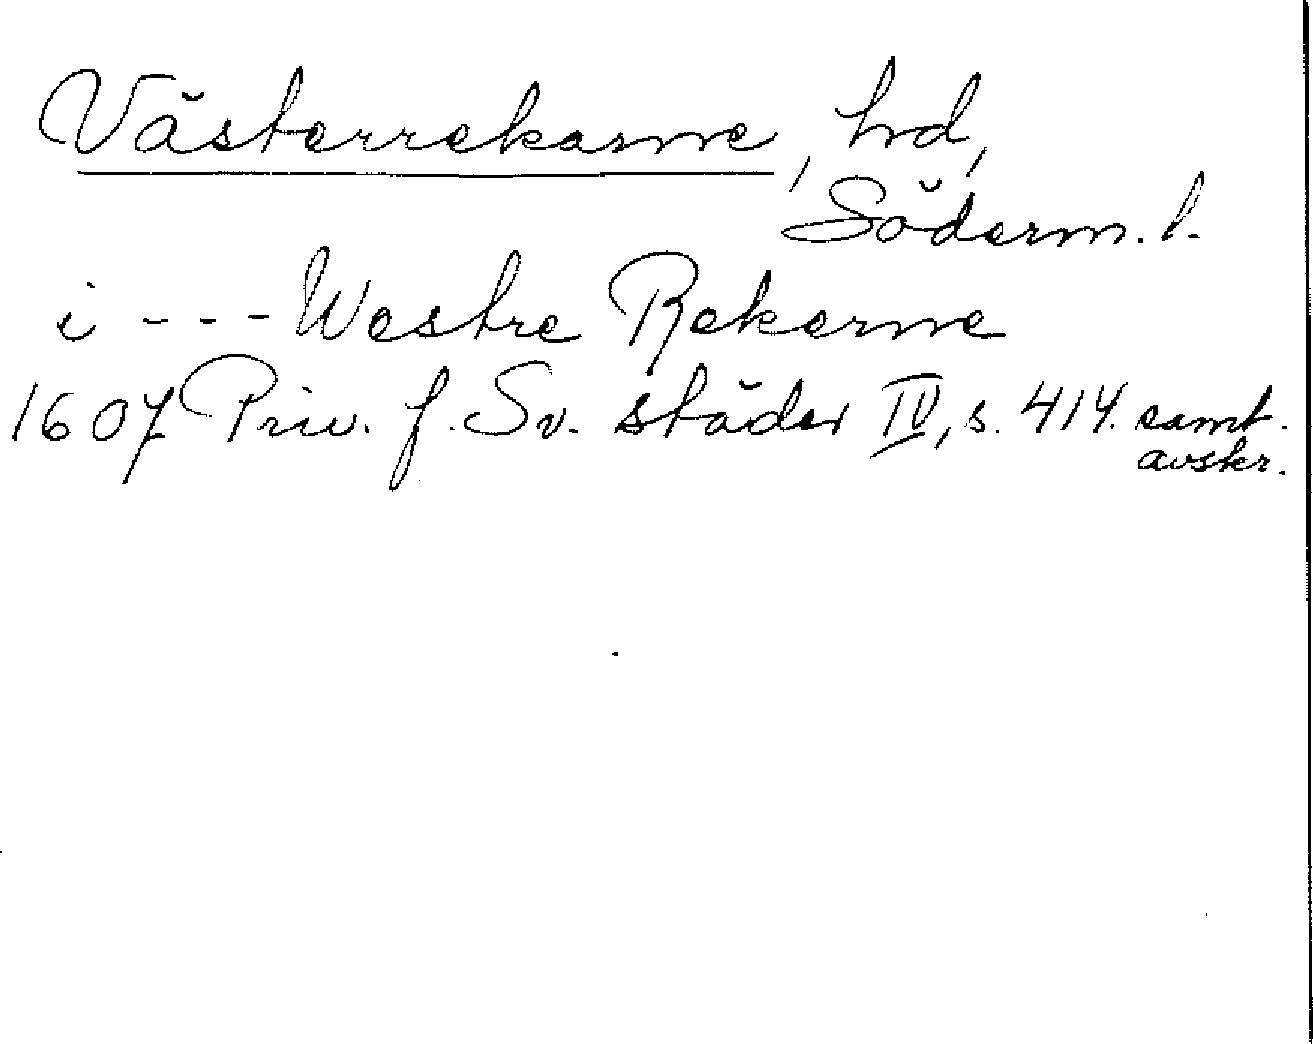 Västerrekarne, hrd,
Söderm. l.
i --- Westre Rekerne
1607 Priv. f. Sv. städer IV, s. 414. samt.
avskr.